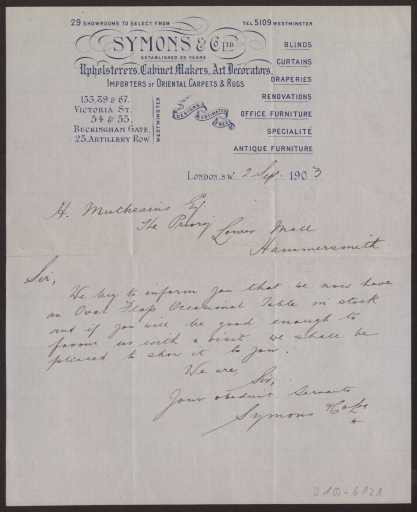 29 SHOWROOMS TO SELECT FROM
TEL 5109 WESTMINSTER
SYMONS & Co LTD
ESTABLISHED 35 YEARS
Upholsterers, Cabinet Makers, Art Decorators,
IMPORTERS OF ORIENTAL CARPETS & RUGS
BLINDS
CURTAINS
DRAPERIES
RENOVATIONS
OFFICE FURNITURE
SPECIALITÉ
ANTIQUE FURNITURE
VICTORIA ST.
54 & 55,
BUCKINGHAM GATE,
25, ARTILLERY ROW
WESTMINSTER
DESIGNS ESTIMATES FREE
LONDON, S.W. 2 Sep. 1903
H. Muthesius Esq
The Priory
Lower Mall
Hammersmith
Sir,
We beg to inform you that we now have
an Oval Flap Occasional Table in stock
and if you will be good enough to
favour us with a visit we shall be
pleased to show it to you.
We are,
Sir,
Your obedient Servants
Symons & Co